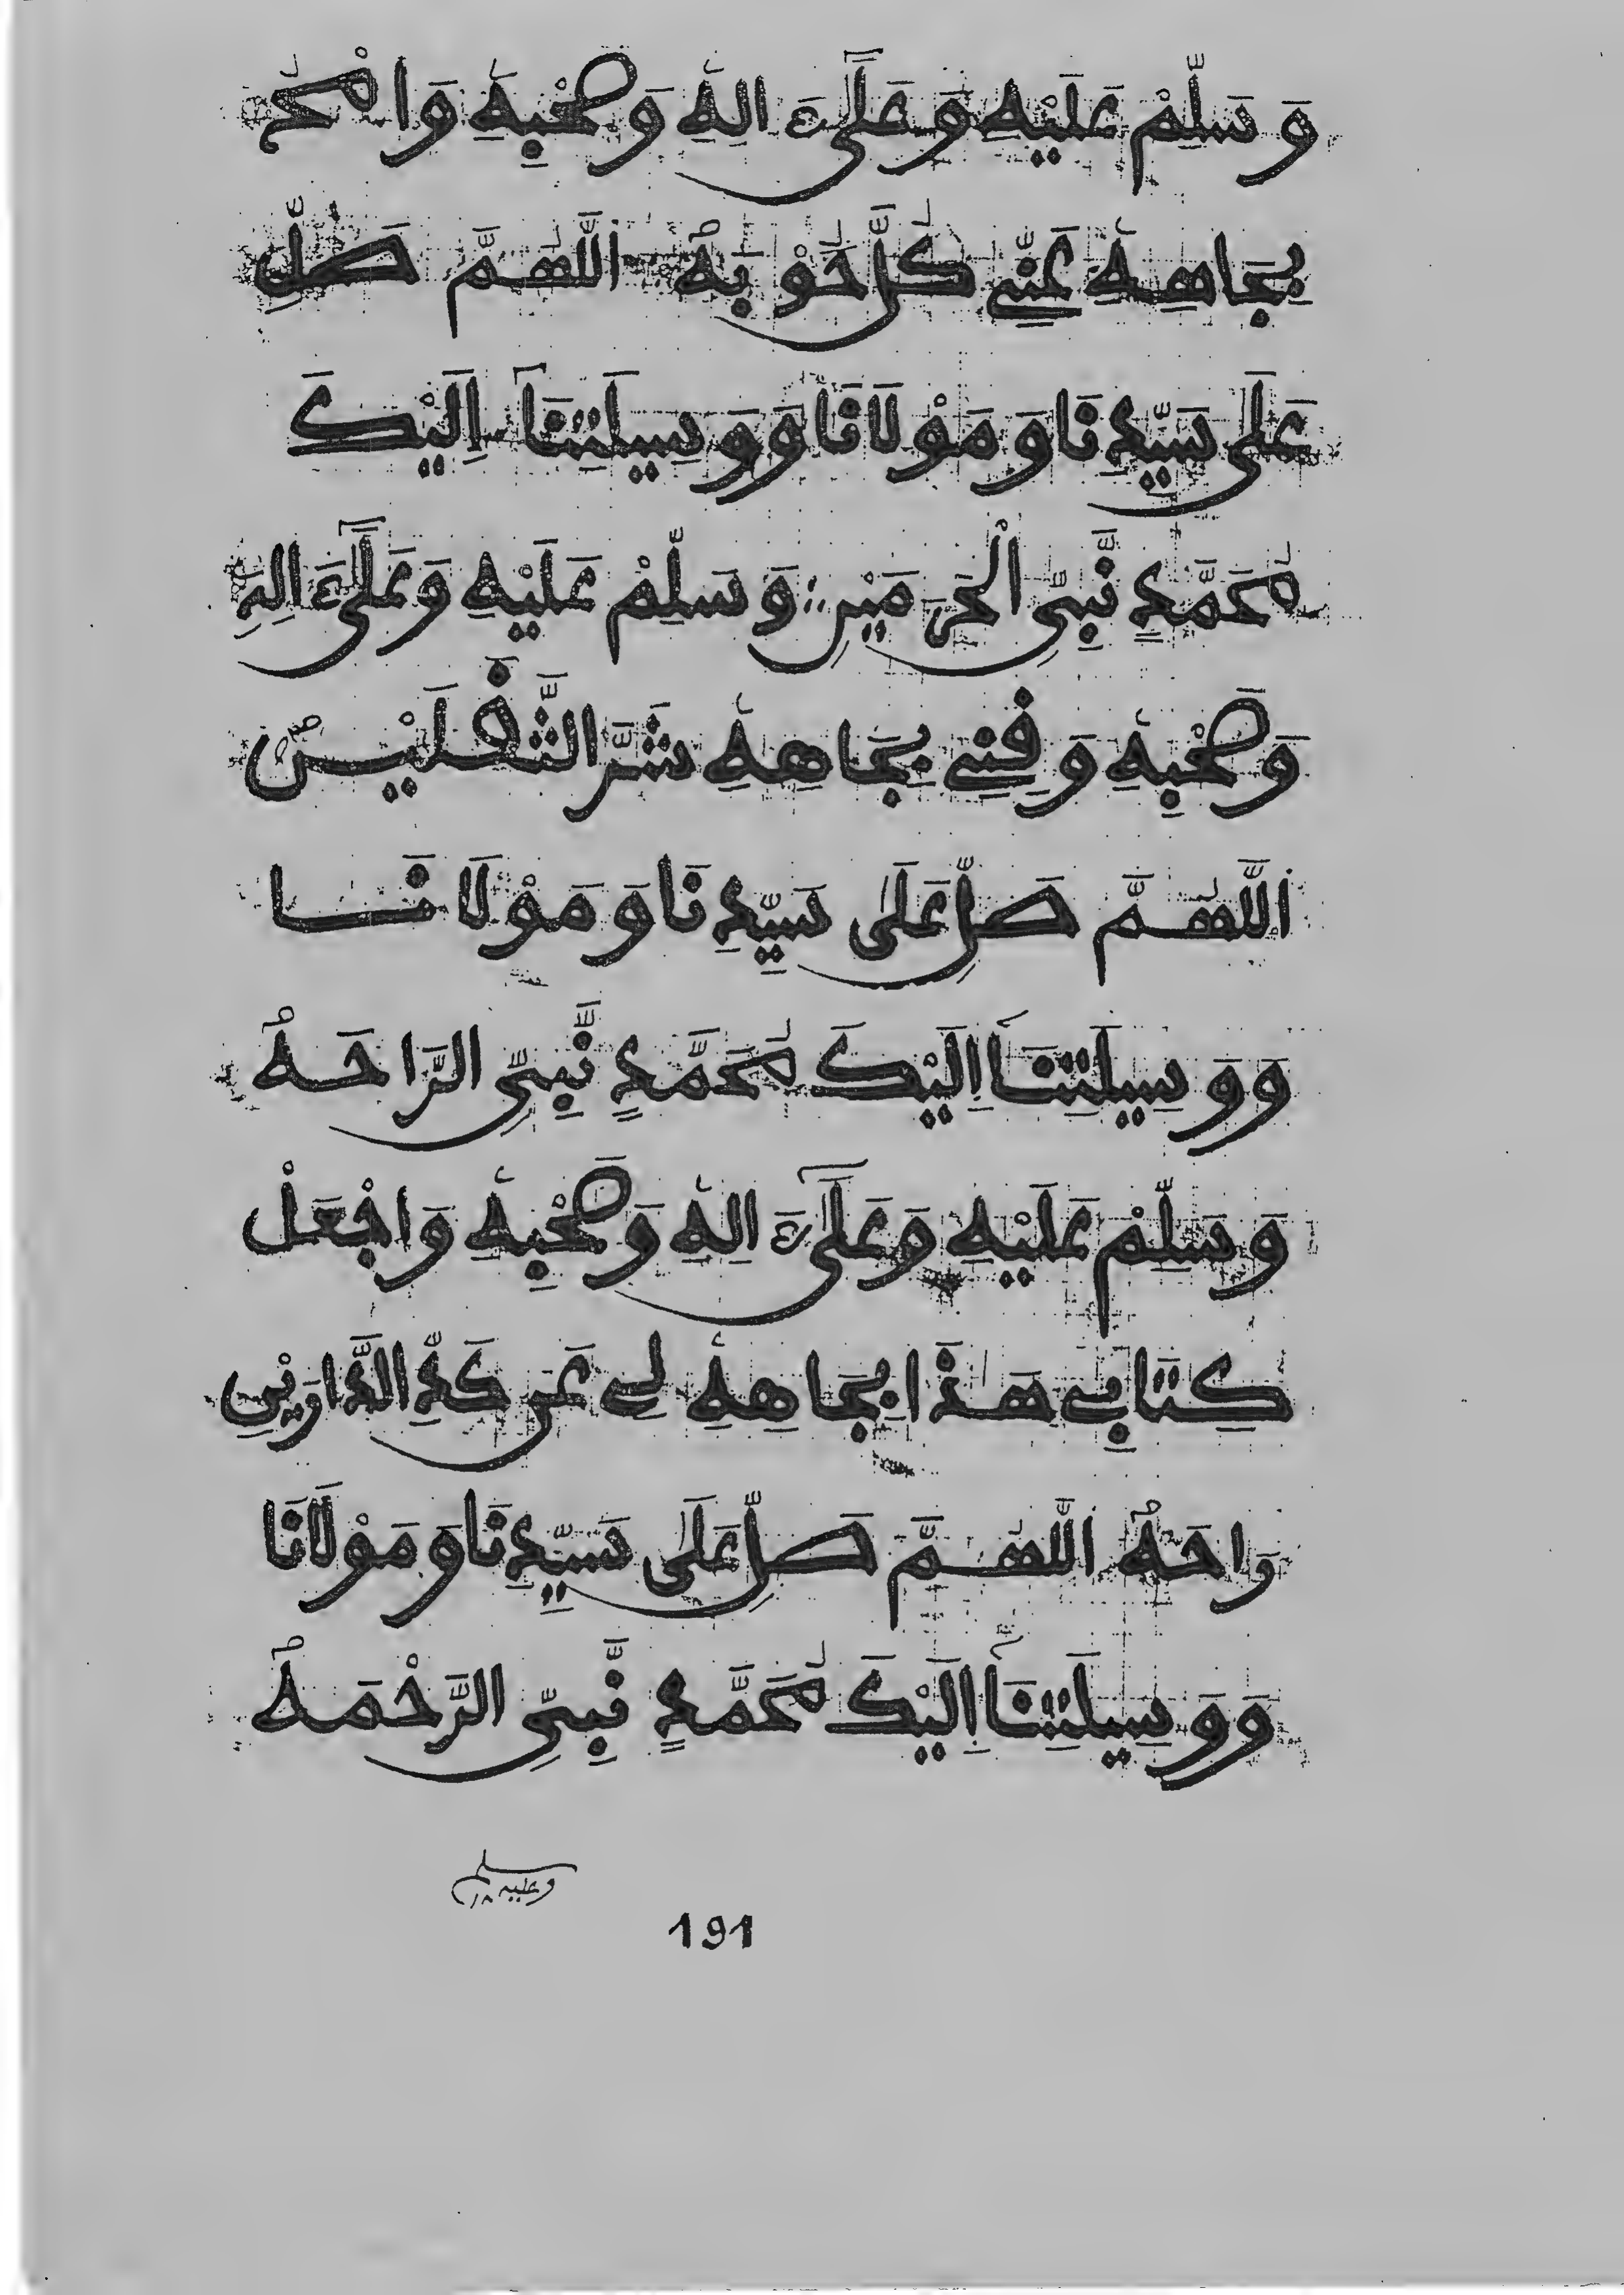 وَسَلِّمْ عَلَيْهِ وَعَلَىٰٓ ءَالِهِ وَصَحْبِهِ وَامْحُ
بِجَاهِهِ عَنِّي كُلَّ حَوْبَهْ اَللَّهُمَّ صَلِّ
عَلَى سَيِّدِنَا وَمَوْلَانَا وَوَسِيلَتِنَآ إِلَيْكَ
مُحَمَّدٍ نَّبِيِّ الْحَرَمَيْنِ وَسَلِّمْ عَلَيْهِ وَعَلَىٰٓ ءَالِهِ
وَصَحْبِهِ وَقِنِي بِجَاهِهِ شَرَّ الثَّقَلَيْنْ
اَللَّهُمَّ صَلِّ عَلَى سَيِّدِنَا وَمَوْلَانَا
وَوَسِيلَتِنَآ إِلَيْكَ مُحَمَّدٍ نَّبِيِّ الرَّاحَهْ
وَسَلِّمْ عَلَيْهِ وَعَلَىٰٓ ءَالِهِ وَصَحْبِهِ وَاجْعَلْ
كِتَابِي هَذَا بِجَاهِهِ لِي عَن كَدِّ الدَّارَيْنِ
رَاحَهْ اَللَّهُمَّ صَلِّ عَلَى سَيِّدِنَا وَمَوْلَانَا
وَوَسِيلَتِنَآ إِلَيْكَ مُحَمَّدٍ نَّبِيِّ الرَّحْمَهْ
وسلم عليه
191